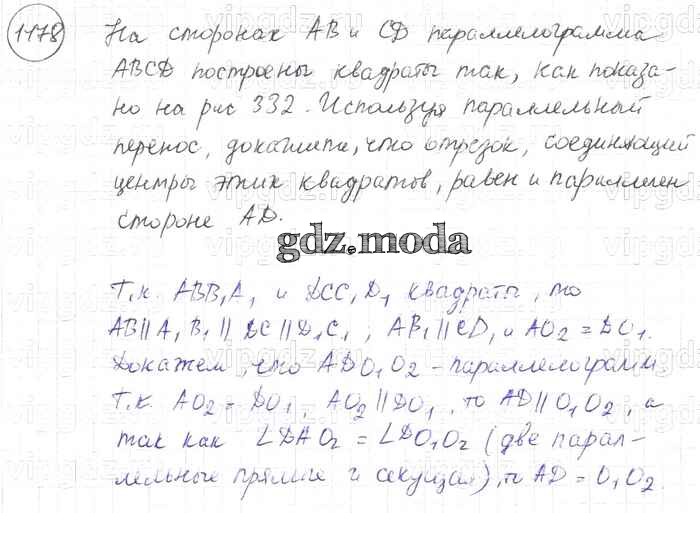 1178
На сторонах AB и CD параллелограмма
ABCD построены квадраты так, как показа-
но на рис 332. Используя параллельный
перенос, докажите, что отрезок, соединяющий
центры этих квадратов, равен и параллелен
стороне AD.
gdz.moda
Т.к. ABB₁A₁ и DCC₁D₁ квадраты, то
AB || A₁B₁ || DC || D₁C₁; AB₁ || CD, и AO₂ = DO₁.
Докажем, что ADO₁O₂ - параллелограмм.
Т.к. AO₂ = DO₁, AO₂ || DO₁, то AD || O₁O₂, а
так как ∠DAO₂ = ∠DO₁O₂ (две парал-
лельные прямые и секущая), то AD = O₁O₂.